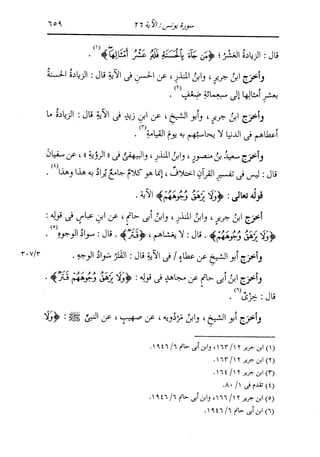 سورة يونس : الآية ٢٦ ٦٥٩
قال : الزيادةُ العَشْرُ ؛ ﴿ مَن جَآءَ بِالْحَسَنَةِ فَلَهُ عَشْرُ أَمْثَالِهَا ﴾ (١) .
وأخرَج ابنُ جريرٍ ، وابنُ المنذرِ ، عن الحسنِ فى الآيةِ قال : الزيادةُ الحسنةُ
بعشرِ أمثالِها إلى سبعِمائةِ ضِعْفٍ (٢) .
وأخرَج ابنُ جريرٍ ، وأبو الشيخِ ، عن ابنِ زيدٍ فى الآيةِ قال : الزيادةُ ما
أعطاهم فى الدنيا لا يحاسبُهم به يومَ القيامةِ (٣) .
وأخرَج سعيدُ بنُ منصورٍ ، وابنُ المنذرِ ، والبيهقىُّ فى « الرؤيةِ » ، عن سفيانَ
قال : ليس فى تفسيرِ القرآنِ اختلافٌ ، إنما هو كلامٌ جامعٌ يُرادُ به هذا وهذا (٤) .
قولُه تعالى : ﴿ وَلَا يَرْهَقُ وُجُوهَهُمْ ﴾ الآية .
أخرَج ابنُ جريرٍ ، وابنُ المنذرِ ، وابنُ أبى حاتمٍ ، عن ابنِ عباسٍ فى قولِه :
﴿ وَلَا يَرْهَقُ وُجُوهَهُمْ ﴾ . قال : لا يغشاهم ، ﴿ قَتَرٌ ﴾ . قال : سوادُ الوجوهِ (٥) .
وأخرَج أبو الشيخِ عن عطاءٍ / فى الآيةِ قال : القَتَرُ سوادُ الوجهِ . ٣٠٧/٣
وأخرَج ابنُ أبى حاتمٍ عن مجاهدٍ فى قولِه : ﴿ وَلَا يَرْهَقُ وُجُوهَهُمْ قَتَرٌ ﴾ .
قال : خِزْىٌ (٦) .
وأخرَج أبو الشيخِ ، وابنُ مَرْدُويَه ، عن صهيبٍ ، عن النبىِّ ﷺ : ﴿ وَلَا
(١) ابن جرير ١٢/ ١٦٣، وابن أبى حاتم ٦/ ١٩٤٦.
(٢) ابن جرير ١٢/ ١٦٣.
(٣) ابن جرير ١٢/ ١٦٤.
(٤) تقدم فى ١/ ٨٠.
(٥) ابن جرير ١٢/ ١٦٦، وابن أبى حاتم ٦/ ١٩٤٦.
(٦) ابن أبى حاتم ٦/ ١٩٤٦.